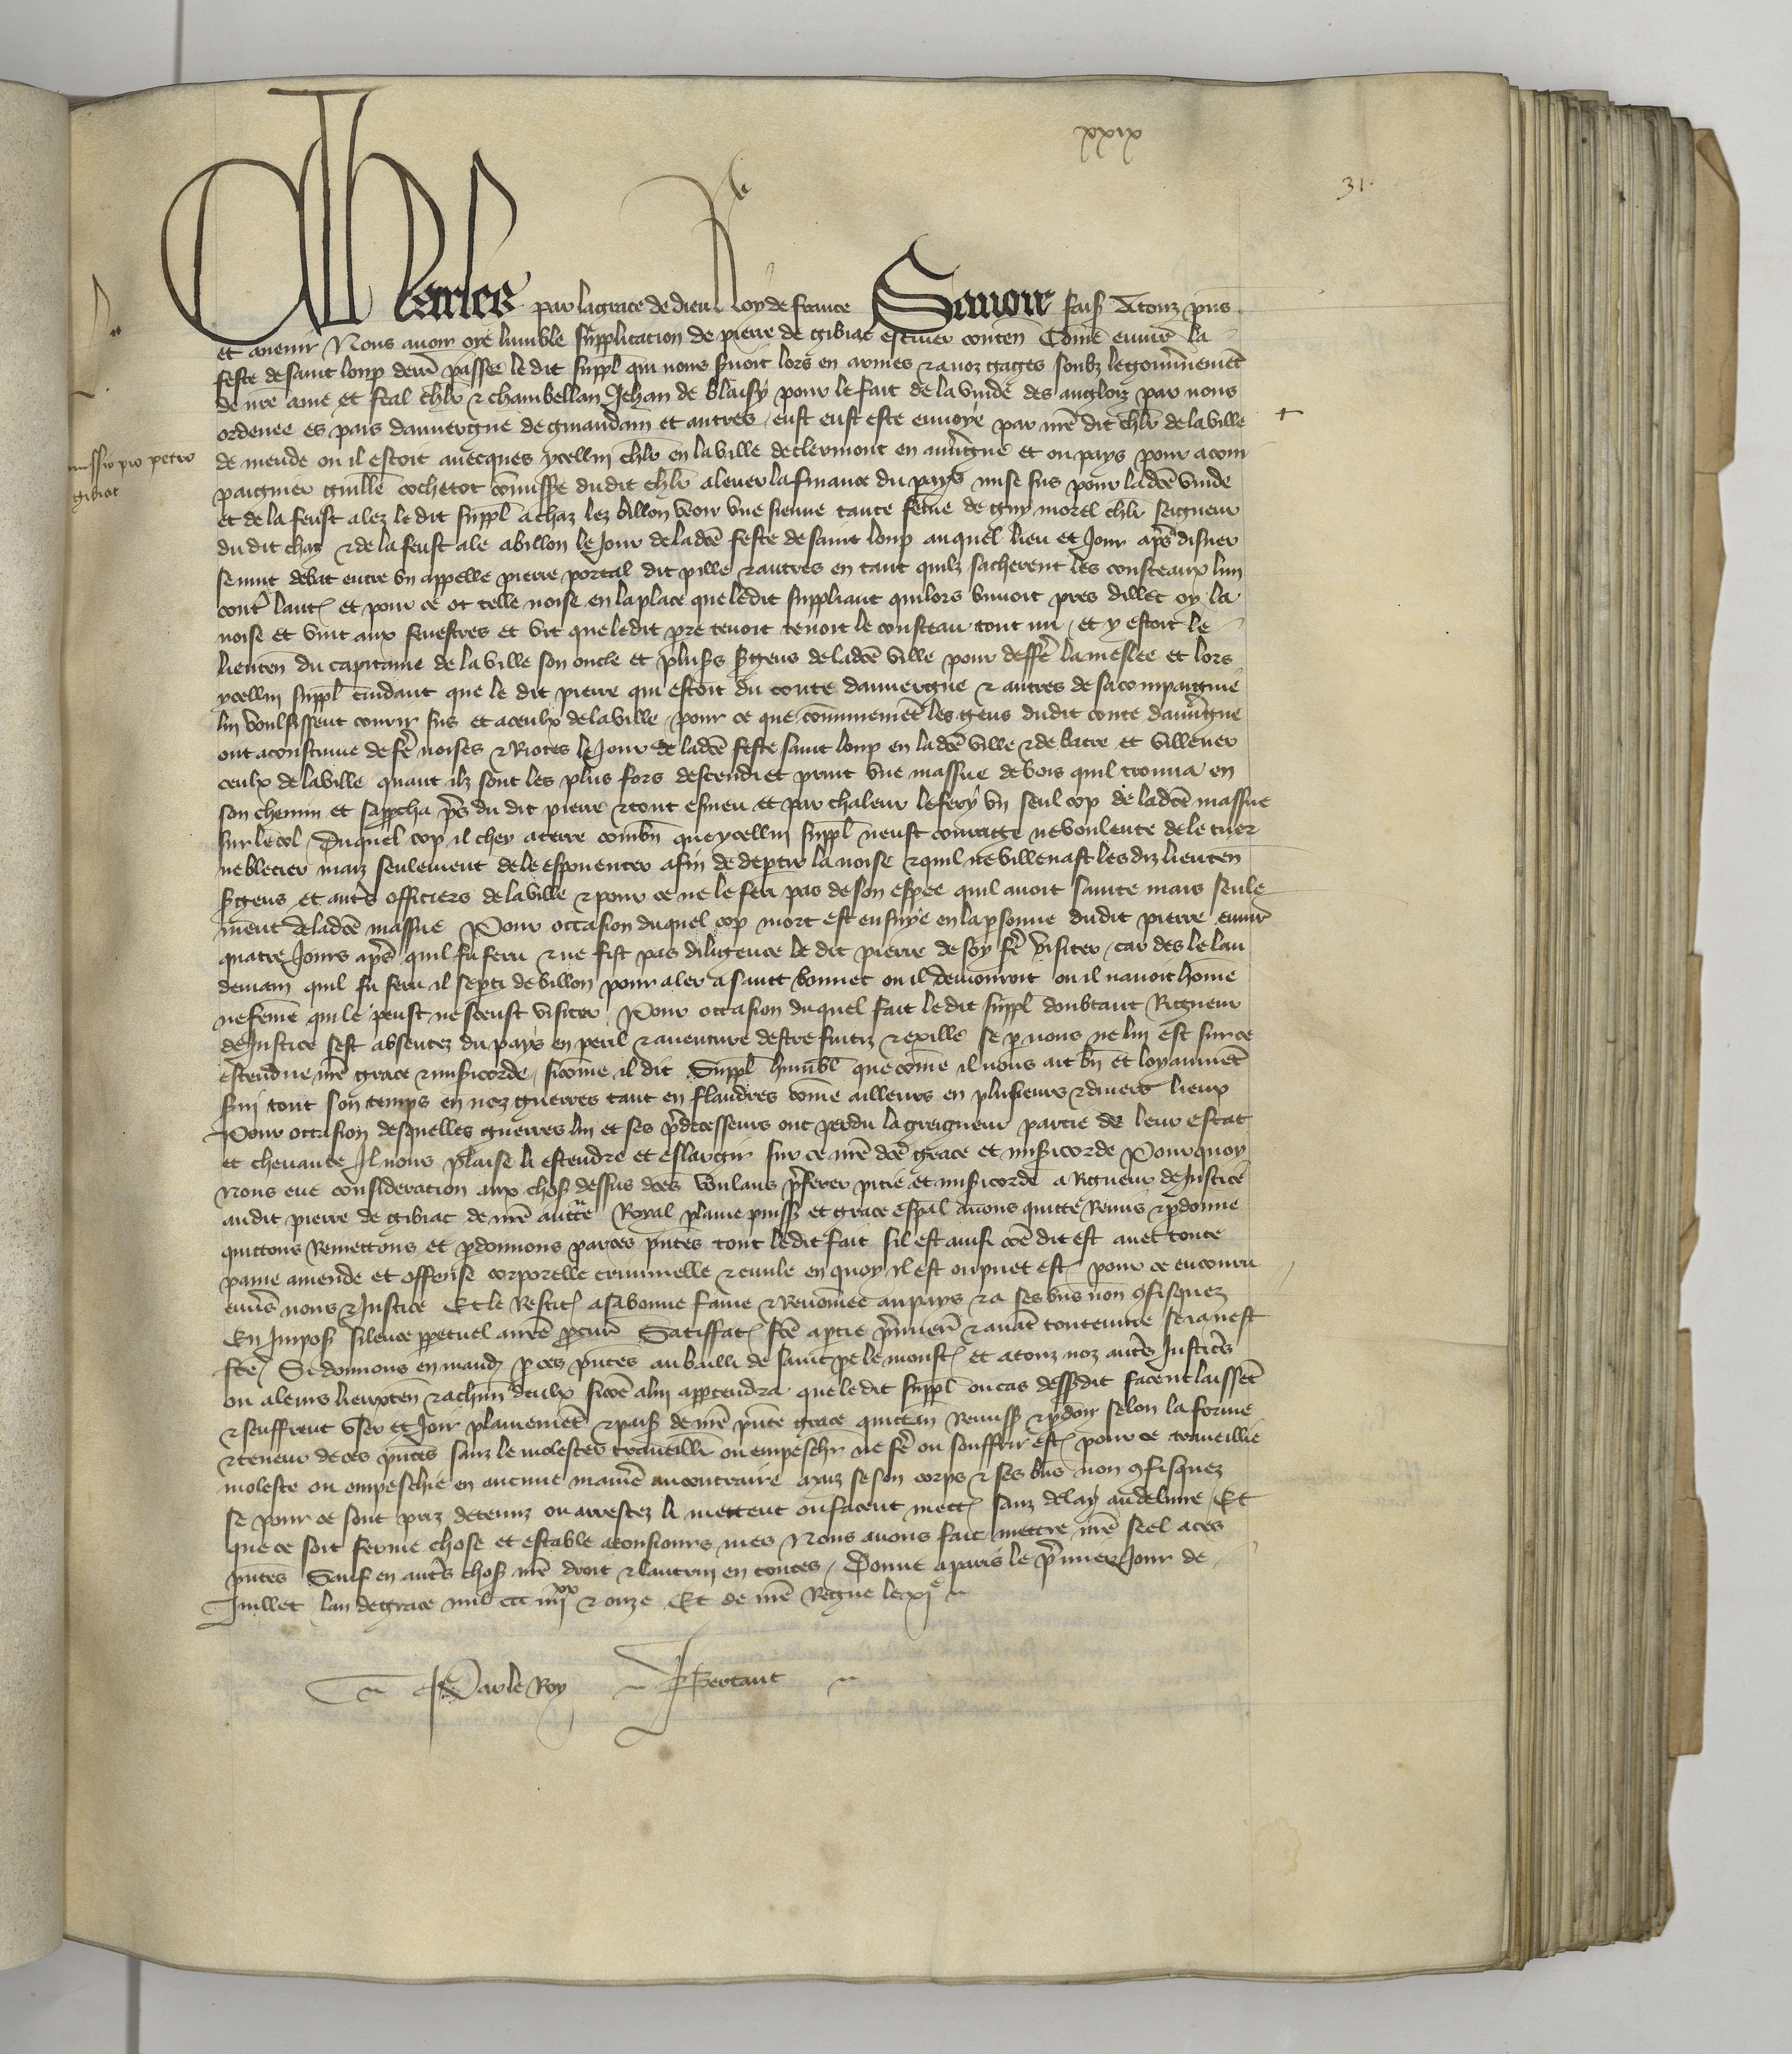 xxix
31.
Charles par la grace de dieu Roy de france Sauoir fais A touz pns
et auenir Nous auoir oye lumble supplicacion de pierre de gibiac escuier conten Come enuir la
feste de saint loup derr passee le dit suppl qui nous seruoit lors en armes & a noz gages soubz le gouuernement
de nre ame et feal chlr & chambellan Jehan de blaisy pour le fait de la vuide des anglois par nous
ordenee es pais dauuergne de giuaudam et autres / eust este enuoye par nre dit chlr de la ville
de mende ou il estoit auecques ycellui chlr en la ville de clermont en auuergne et ou pays pour acom
missio pro petro
gibiat
paignier guille cochetot commisse du dit chlr a leuer la finance du pays mise sus pour la dce vuide
et de la feust alez le dit suppl a chaz lez billon veoir vne sienne tante feme de guy morel chlr seigneur
du dit chaz & de la feust ale a billon le Jour de la dce feste de saint loup auquel lieu et Jour apres disner
se mut debat entre vn appelle pierre portal dit pille & autres en tant quilz sacherent les cousteaux lun
contre lautre et pour ce ot telle noise en la place que le dit suppliant qui lors buuoit pres dillec oy la
noise et vint aux fenestres et vit que le dit pre tenoit tenoit le cousteau tout nu / et y estoit le
lieuten du capitaine de la ville son oncle et plus sergens de la dce ville pour deffere la meslee et lors
ycellui suppl cuidant que le dit pierre qui estoit du conte dauuergne & autres de sa compaignie
lui voulsissent courir sus et a ceulx de la ville / pour ce que communement les gens du dit conte dauuergne
ont acoustume de fere noises & Riotes le Jour de la dce feste saint loup en la dce ville & de batre et villener
ceulx de la ville quant ilz sont les plus fors descendi et print vne massue de bois quil trouua en
son chemin et sapprocha pres du dit pierre & tout esmeu et par chaleur le fery vn seul cop de la dce massue
sur le col / Duquel cop il chey a terre combn que ycellui suppl neust courage ne voulente de le tuer
ne blecier maiz seulement de le espouenter afin de deptir la noise & quil ne villenast les diz lieuten
sergens et autres officiers de la ville & pour ce ne le feri pas de son espee quil auoit sainte mais seule
ment de la dce massue Pour occasion duquel cop mort est ensuye en la psonne du dit pierre enuir
quatre Jours apres quil fu feru & ne fist pas diligence le dit pierre de soy fere visiter / car des le lan
demain quil fu feru il se pti de billon pour aler a saint bonnet ou il demouroit ou il nauoit home
ne feme qui le peust ne sceust visiter Pour occasion duquel fait le dit suppl doubtant Rigueur
de Justice sest absentez du pays en peril & auenture destre fuitiz & exille se p nous ne lui est sur ce
estendue nre grace & misericorde / sicome il dit Suppl humbl que come il nous ait bn et loyaument
serui tout son temps en noz guerres tant en flandres come ailleurs en plusieurs & diuers lieux
Pour occasion desquelles guerres lui et ses predecesseurs ont perdu la greigneur partie de leur estat
et cheuance Il nous plaise li estendre et eslargir sur ce nre dce grace et misericorde Pour quoy
Nous eue consideracion aux choses dessus dces voulans preferer pitie et misericorde a Rigueur de Justice
au dit pierre de gibiac de nre aucte Royal plaine puiss et grace espal auons quitte Remis & pdonne
quittons Remettons et pdonnons par ces pntes tout le dit fait sil est ainsi come dit est auec toute
paine amende et offense corporelle criminelle & ciuile en quoy il est ou puet estre pour ce encouru
enuers nous & Justice Et le Restit a sa bonne fame & Renomee au pays & a ses bns non confisquez
En Impos silence ppetuel a nre procur Satiffac fce a ptie premier & auat toute euure se ia nest
fce / Si donnons en mand p ces pntes au bailli de saint pe le moustr et a touz noz autres Justic
ou a leurs lieuxten & a chun deulx sicome a lui apptendra que le dit suppl ou cas dessusdit facent laissent
& seuffrent vser et Joir plainement & pais de nre pnte grace quittan Remiss & pdon selon la forme
& teneur de ces pntes sanz le molester trauaillr ou empeschr ne fere ou souffrir estre pour ce traueillie
moleste ou empeschie en aucune maniere au contraire ainz se son corps & ses bns non confisquez
se pour ce sont priz detenuz ou arrestez li mettent ou facent mettr sanz delay au deliure / Et
que ce soit ferme chose et estable a tousiours mes Nous auons fait mettre nre seel a ces
pntes Sauf en autres choses nre droit & lautrui en toutes / Donne a paris le premier Jour de
Juillet lan de grace mil ccc iiiixx & onze Et de nre Regne le xie
Par le Roy Bertaut